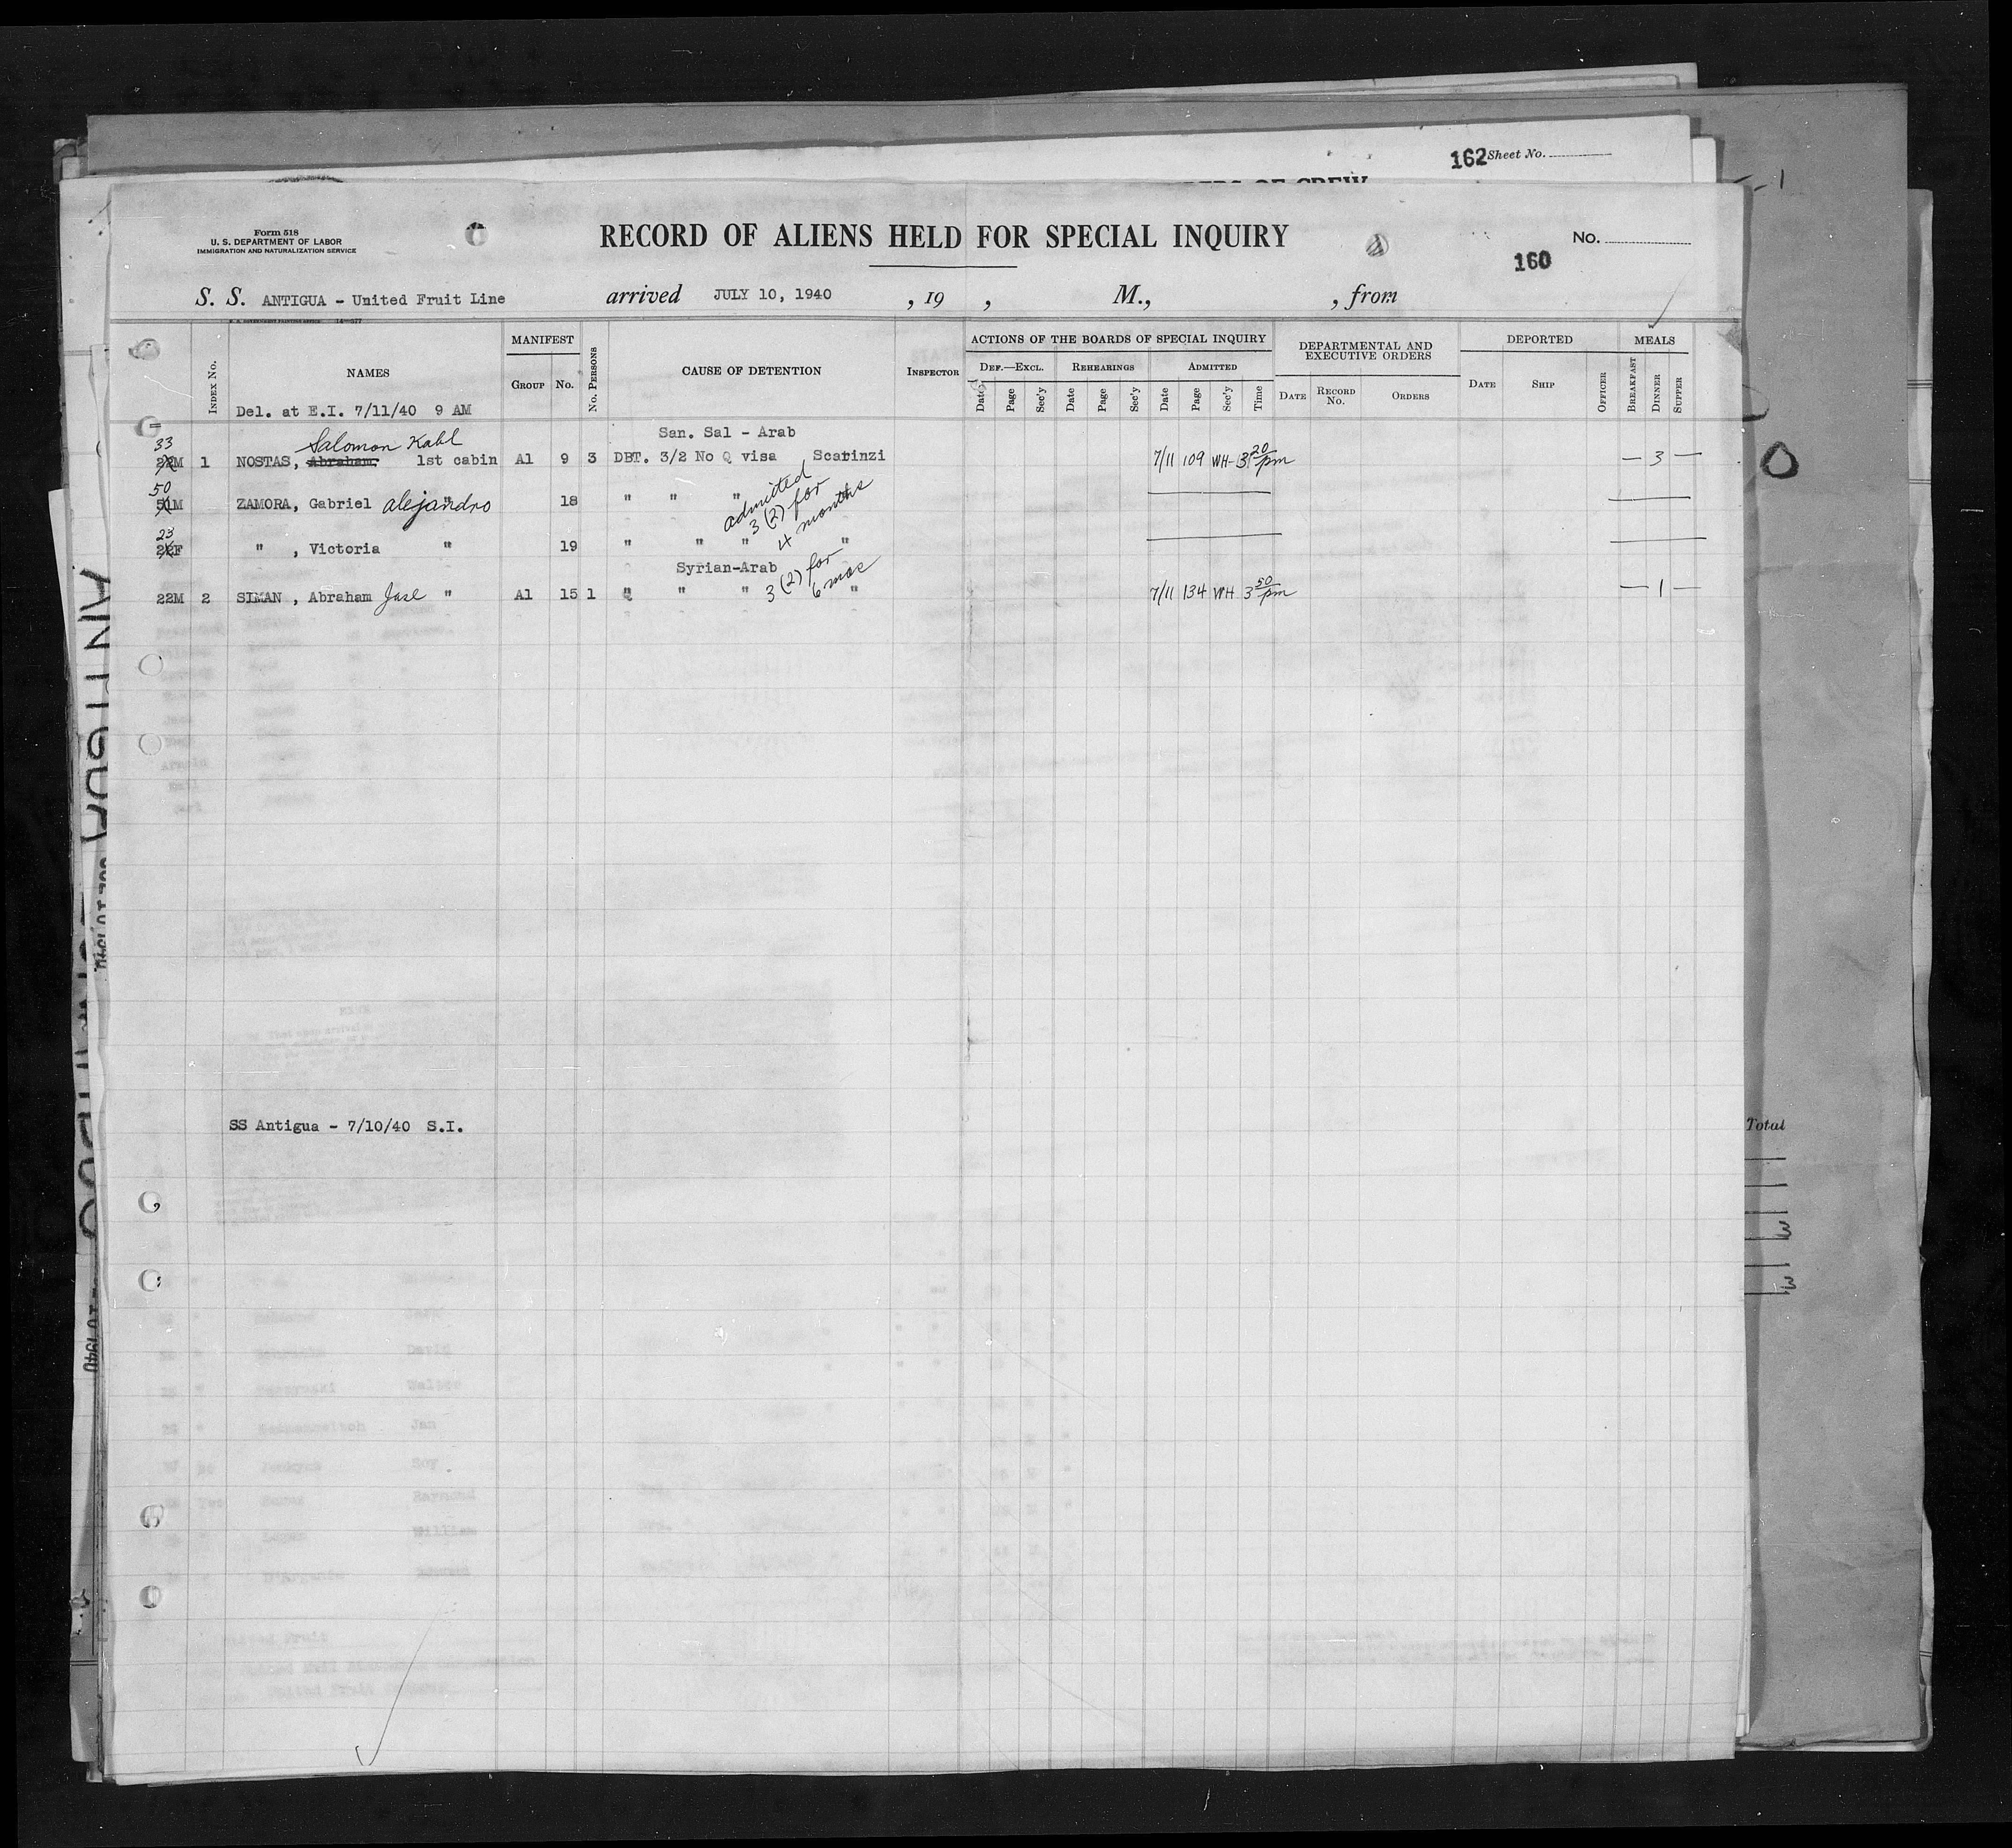 162 Sheet No.
Form 518
U. S. DEPARTMENT OF LABOR
IMMIGRATION AND NATURALIZATION SERVICE
RECORD OF ALIENS HELD FOR SPECIAL INQUIRY
No.
160
S. S. ANTIGUA - United Fruit Line arrived JULY 10, 1940 , 19 , M., , from
MANIFEST
ACTIONS OF THE BOARDS OF SPECIAL INQUIRY
DEPARTMENTAL AND EXECUTIVE ORDERS
DEPORTED
MEALS
Index No. NAMES Group No. No. Persons CAUSE OF DETENTION Inspector Def.—Excl. Rehearings Admitted
Date Page Sec'y Date Page Sec'y Date Page Sec'y Time Date Record No. Orders Date Ship Officer Breakfast Dinner Supper
Del. at E.I. 7/11/40 9 AM
33 Salomon Kahl San. Sal - Arab
22M 1 NOSTAS, Abraham, 1st cabin A1 9 3 DBT. 3/2 No Q visa Scarinzi 7/11 109 WH- 3 20 pm — 3 —
50
51M ZAMORA, Gabriel Alejandro " 18 " " "
admitted 3 (2) for 4 months
23
22F " , Victoria " 19 " " " "
Syrian-Arab
22M 2 SIMAN , Abraham " A1 15 1 " " " 3 (2) for 6 mos " 7/11 134 WH 3 50 pm — 1 —
SS Antigua - 7/10/40 S.I.
Total